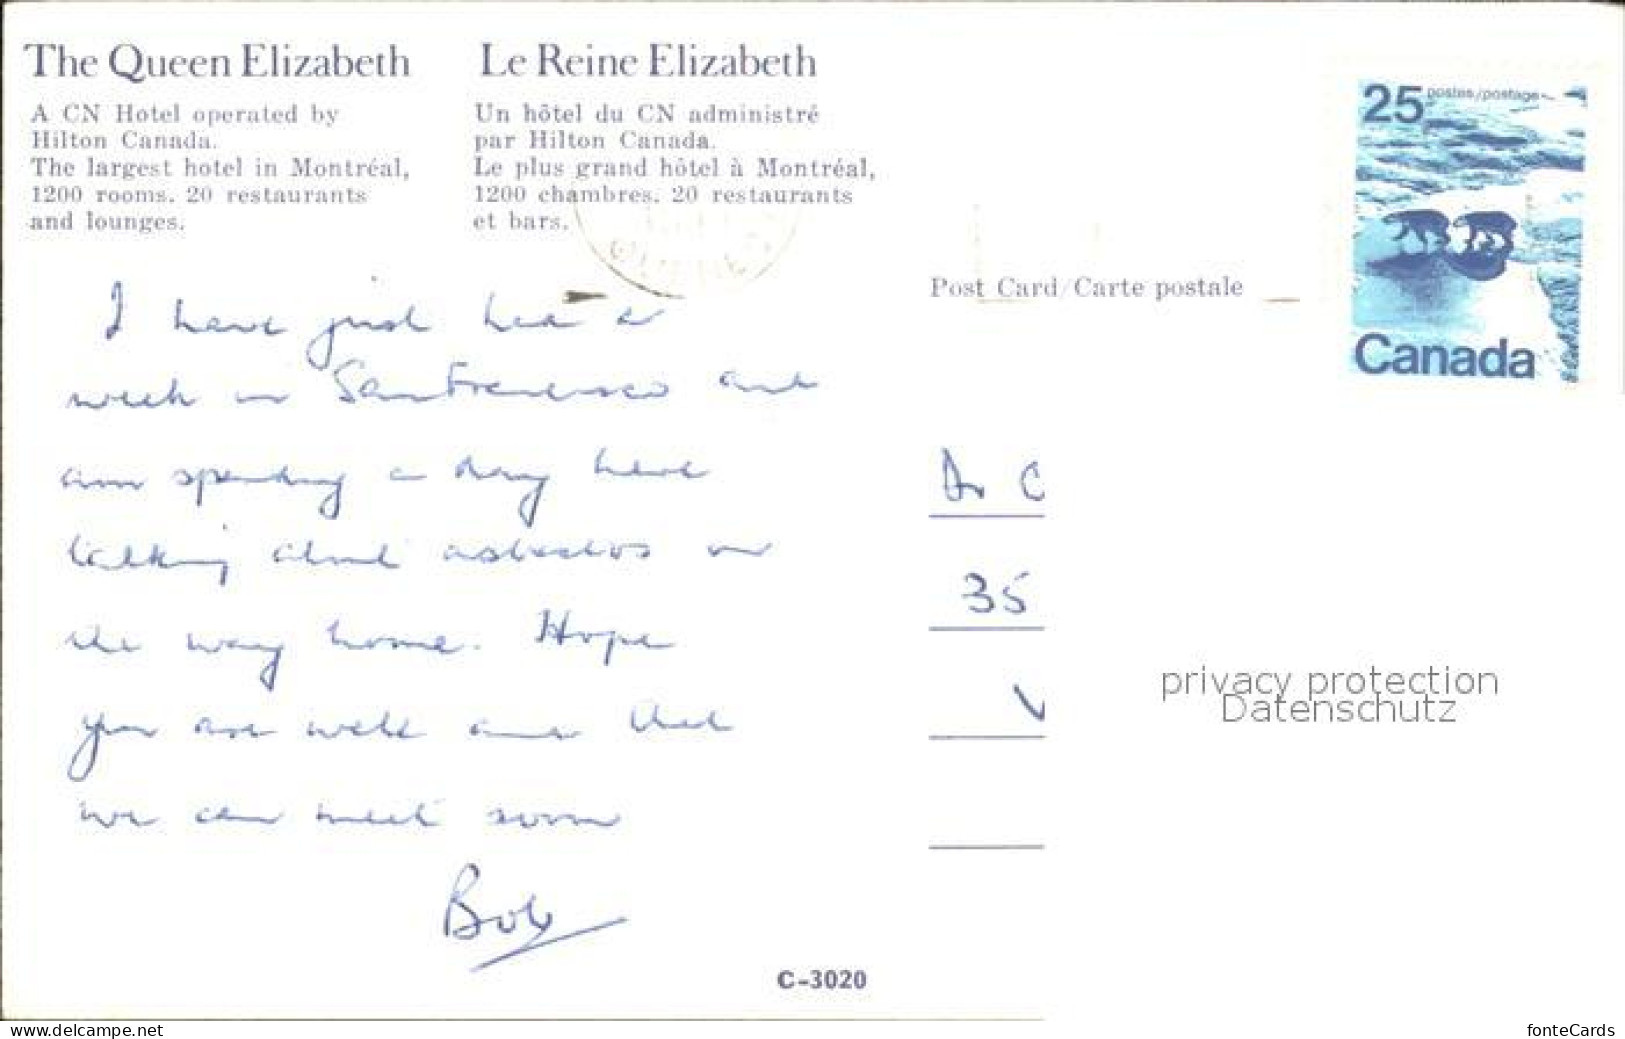 The Queen Elizabeth
A CN Hotel operated by
Hilton Canada.
The largest hotel in Montréal,
1200 rooms, 20 restaurants
and lounges.
Le Reine Elizabeth
Un hôtel du CN administré
par Hilton Canada.
Le plus grand hôtel à Montréal,
1200 chambres, 20 restaurants
et bars.
25 postes/postage
Canada
Post Card/Carte postale
I have just had a
week in San Francisco and
am spending a day here
talking about asbestos on
the way home. Hope
you are well and that
we can meet soon
Bob
Dr C
35
C-3020
privacy protection
Datenschutz
www.delcampe.net
fonteCards